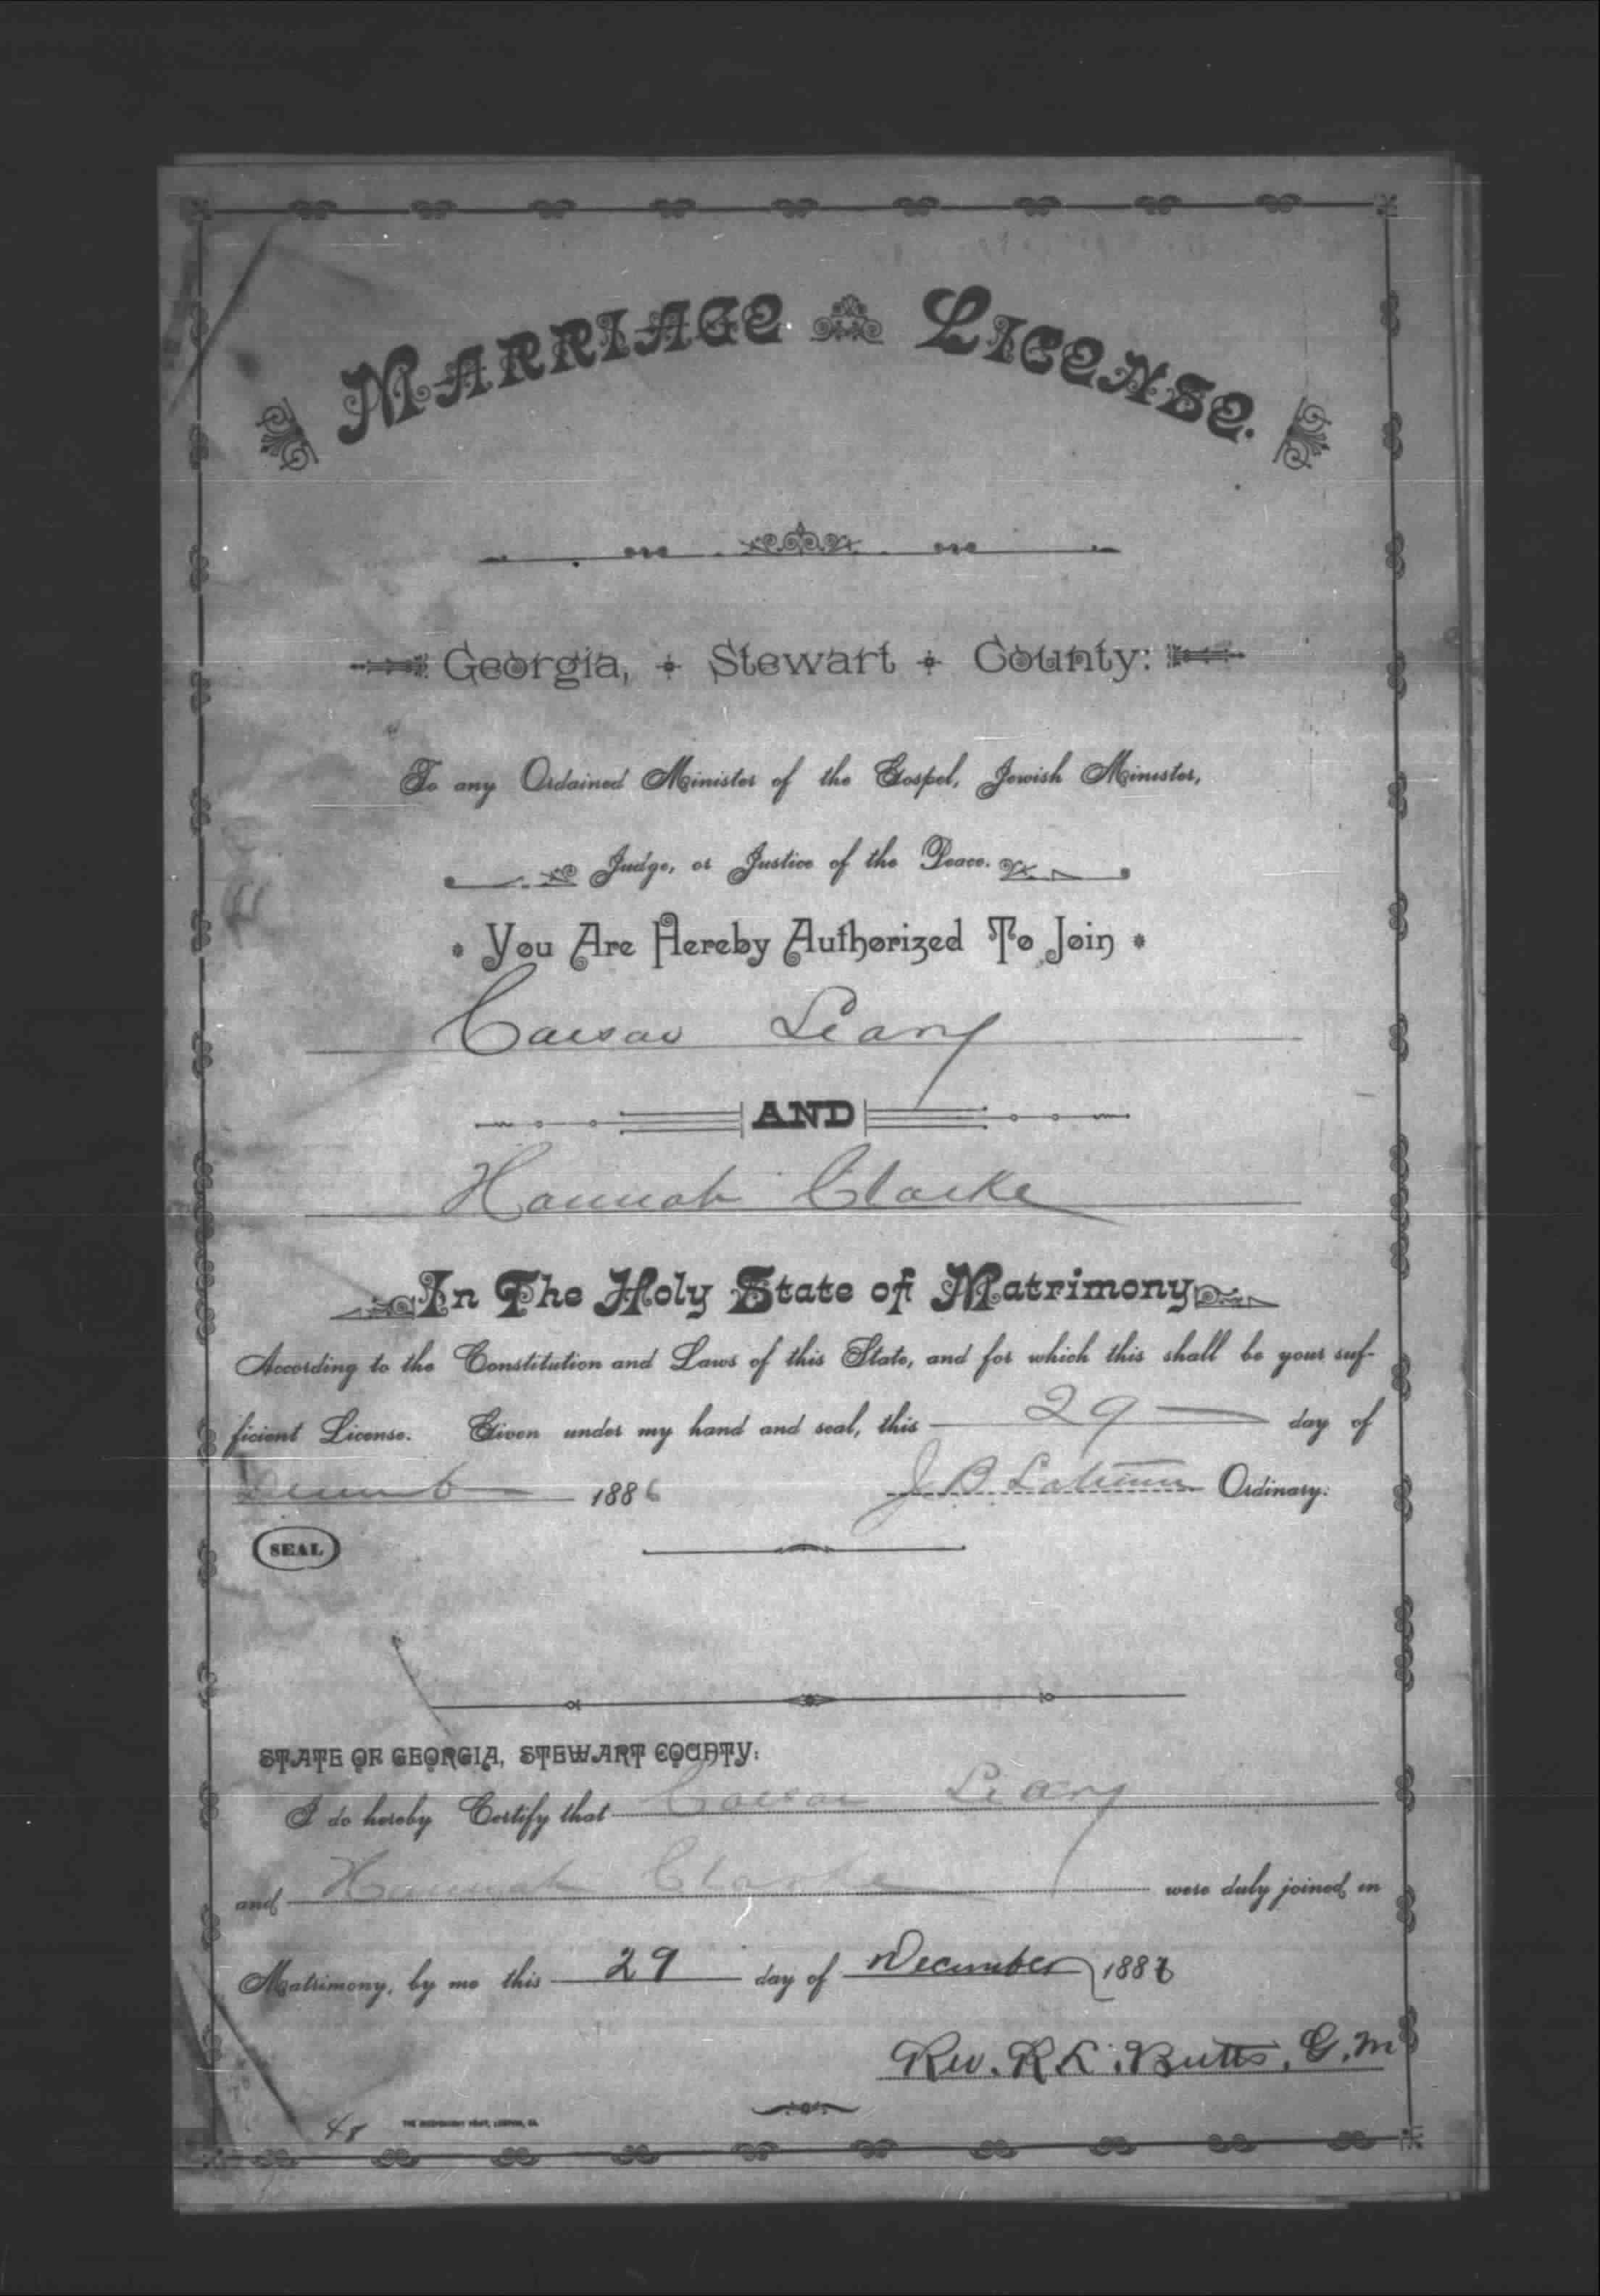 MARRIAGE LICENSE.
Georgia, Stewart County:
To any Ordained Minister of the Gospel, Jewish Minister,
Judge, or Justice of the Peace.
You Are Hereby Authorized To Join
Caesar Leary
AND
Hannah Clarke
In The Holy State of Matrimony
According to the Constitution and Laws of this State, and for which this shall be your suf-
ficient License. Given under my hand and seal, this 29 day of
Decemb 1886 J. B. Latimer Ordinary.
SEAL
STATE OF GEORGIA, STEWART COUNTY:
I do hereby Certify that Caesar Leary
and Hannah Clarke were duly joined in
Matrimony, by me this 29 day of December 1886
Rev. R. L. Butts, G. M
48